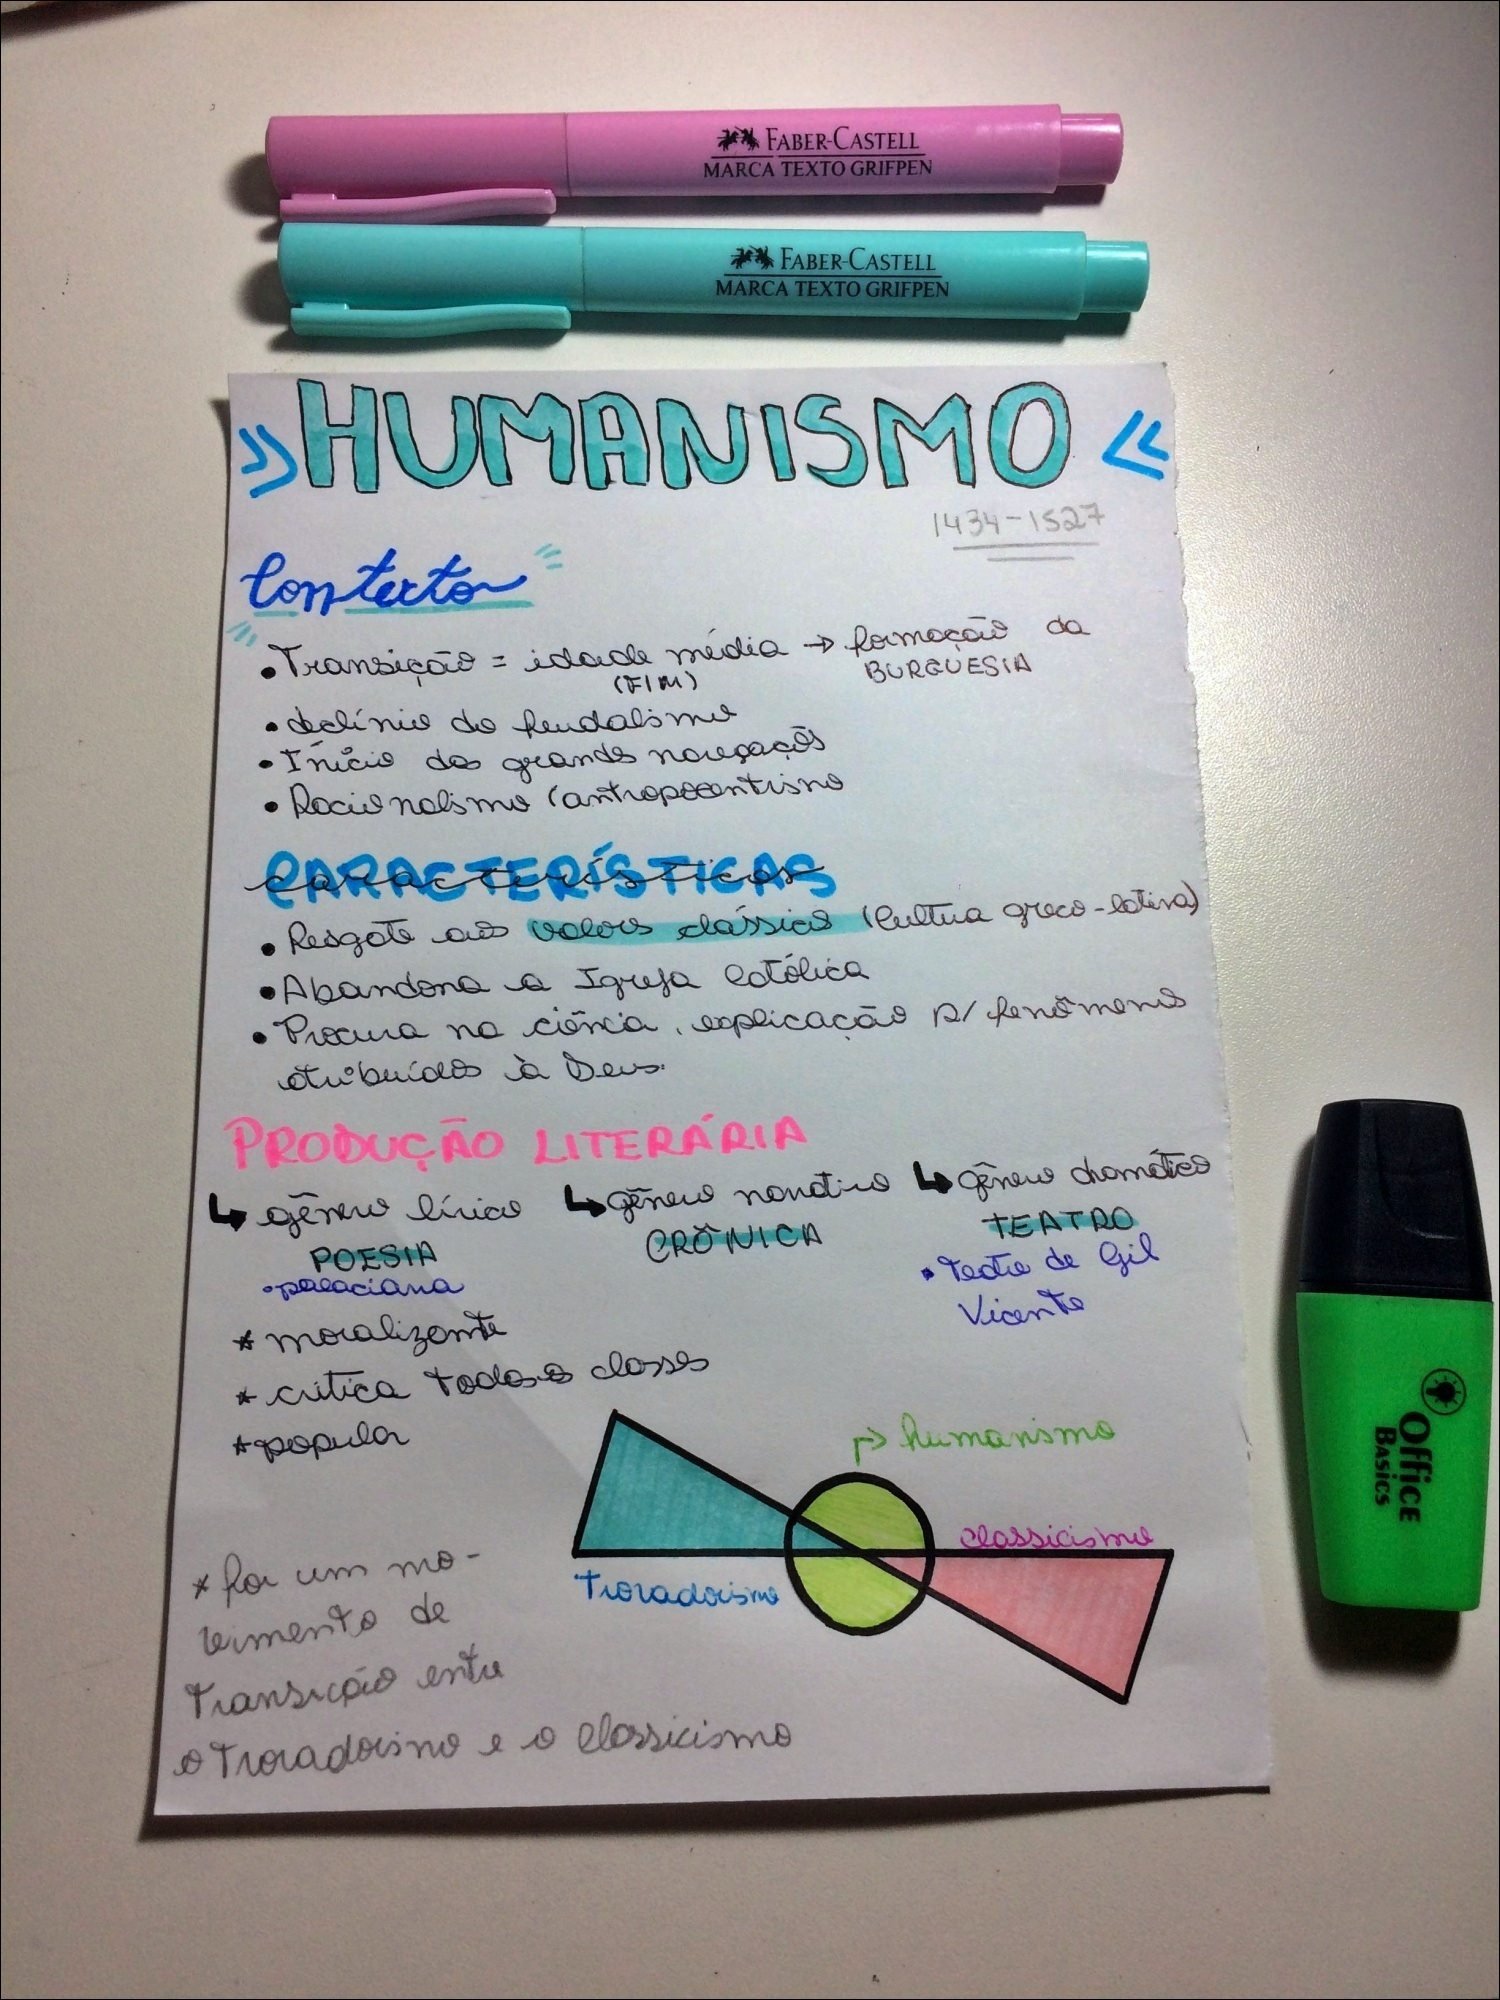 FABER-CASTELL
MARCA TEXTO GRIFPEN
FABER-CASTELL
MARCA TEXTO GRIFPEN
» HUMANISMO «
1434-1527
Contexto
• Transição = idade média → formação da
(FIM) BURGUESIA
• declínio do feudalismo
• Início das grandes navegações
• Racionalismo (antropocentrismo
CARACTERÍSTICAS
características
• Resgate aos valores clássicos (Cultura greco-latina)
• Abandona a Igreja Católica
• Procura na ciência, explicação p/ fenômenos
atribuídos à Deus.
PRODUÇÃO LITERÁRIA
↳ gênero lírico ↳ gênero narrativo ↳ gênero dramático
POESIA CRÔNICA TEATRO
• palaciana • Teatro de Gil
Vicente
* moralizante
* critica todas as classes
* popular
→ humanismo
classicismo
Trovadorismo
* foi um mo-
vimento de
Transição entre
o Trovadorismo e o Classicismo
Office
BASICS